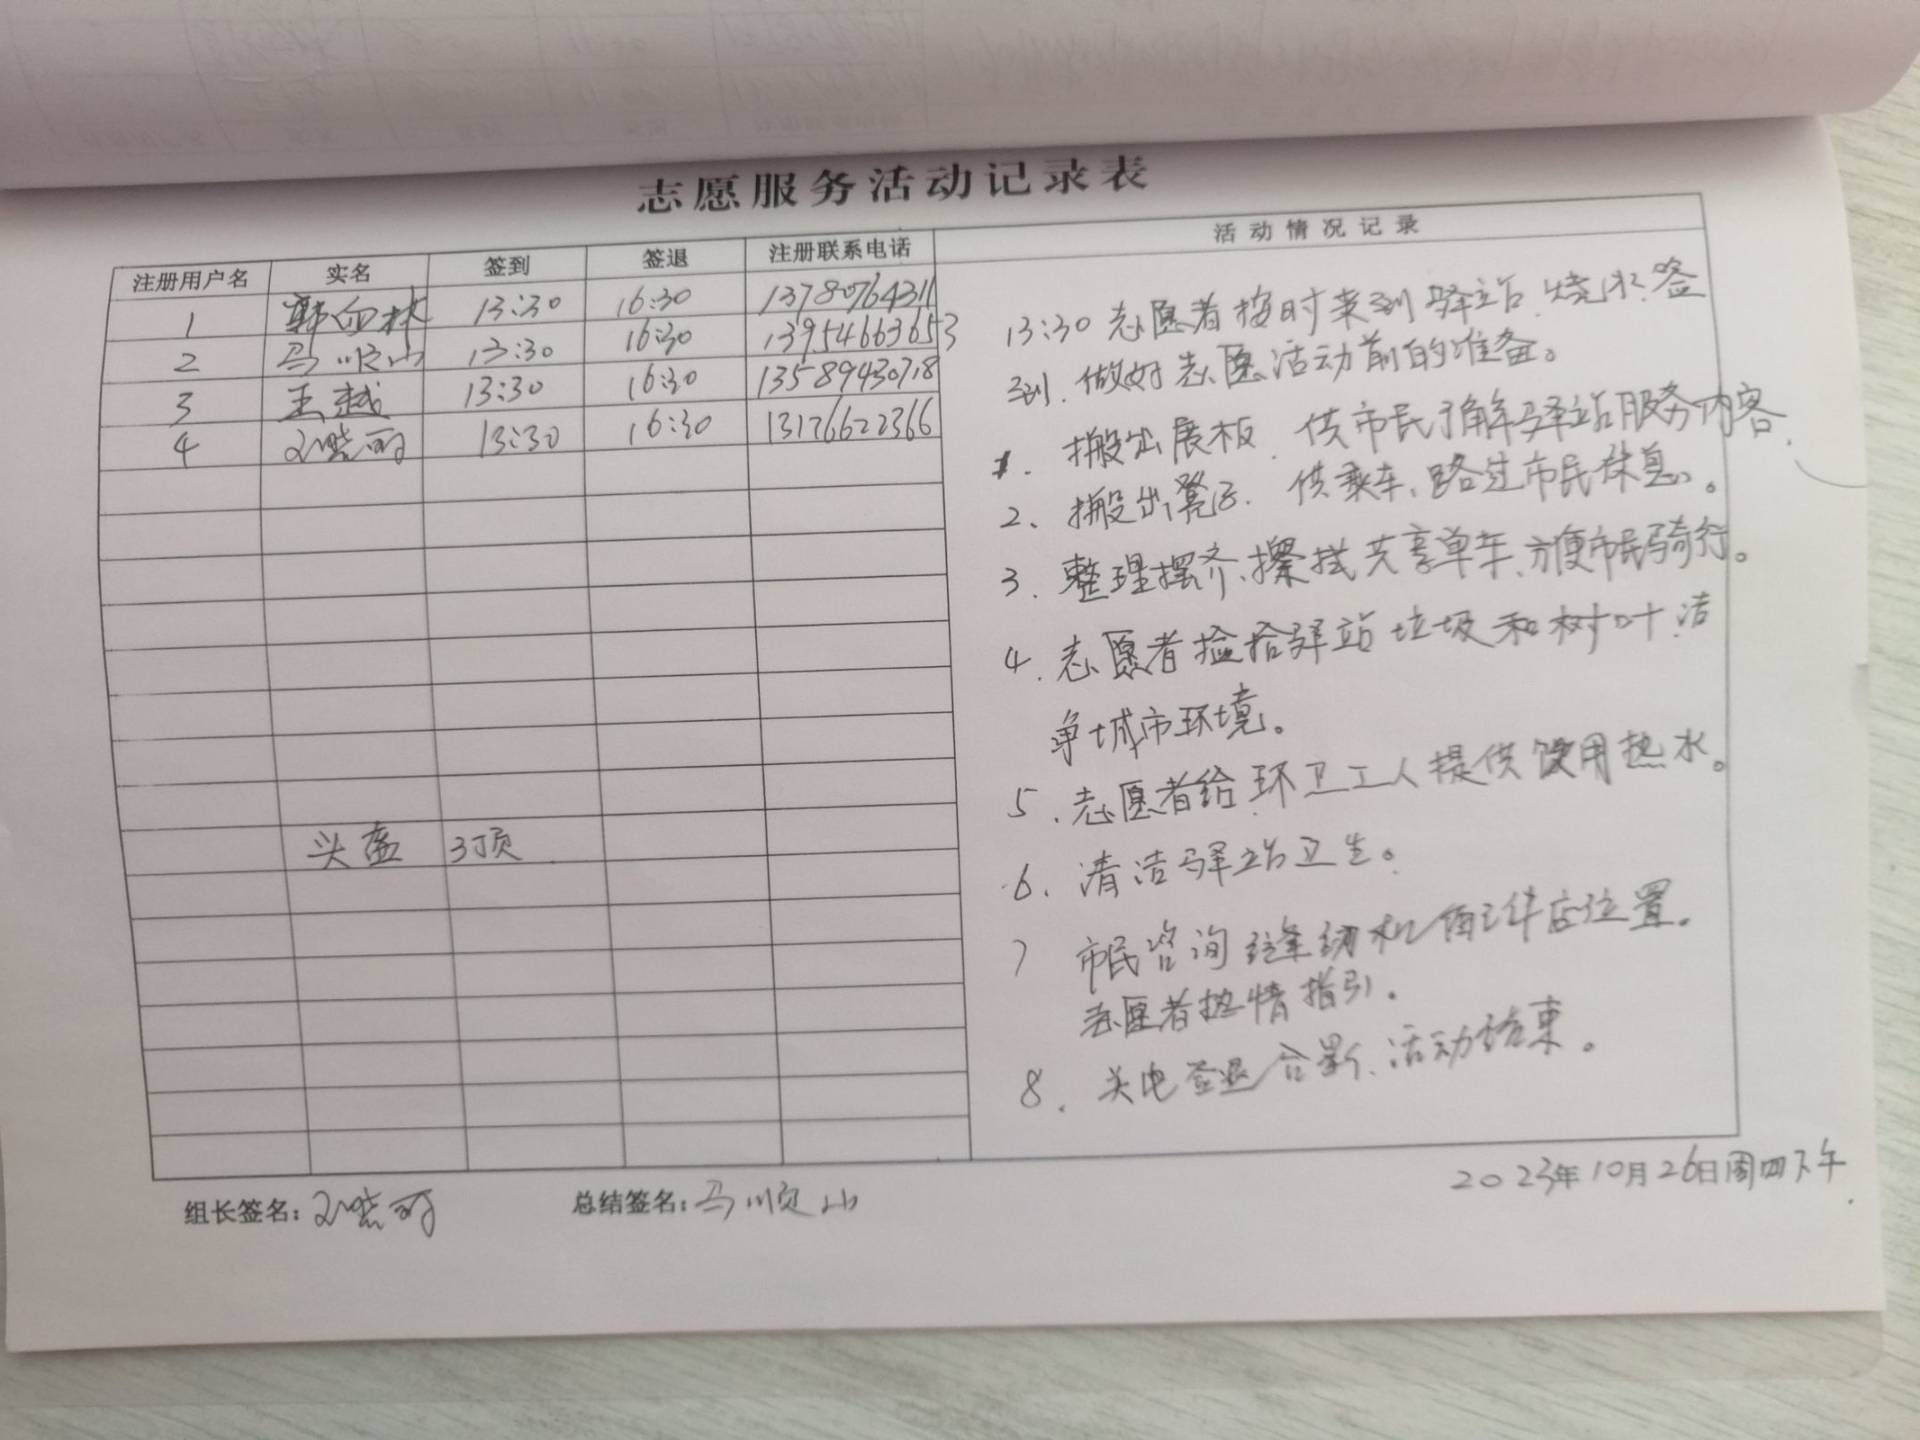 志愿服务活动记录表
注册用户名 实名 签到 签退 注册联系电话
1 13:30 16:30 13780764311
2 马顺山 13:30 16:30 13954663653
3 王越 13:30 16:30 13589430718
4 刘晓丽 13:30 16:30 13176622366
头盔 3顶
组长签名：刘晓丽 总结签名：马顺山
活动情况记录
13:30 志愿者按时来到驿站，烧水、签
到，做好志愿活动前的准备。
1. 搬出展板，供市民了解驿站服务内容，
2、搬出凳子，供乘车、路过市民休息。
3. 整理摆齐、擦拭共享单车，方便市民骑行。
4. 志愿者捡拾驿站垃圾和树叶，洁
净城市环境。
5. 志愿者给环卫工人提供饮用热水。
6. 清洁驿站卫生。
7 市民咨询缝纫机配件店位置。
志愿者热情指引。
8. 关电签退合影、活动结束。
2023年10月26日周四下午.